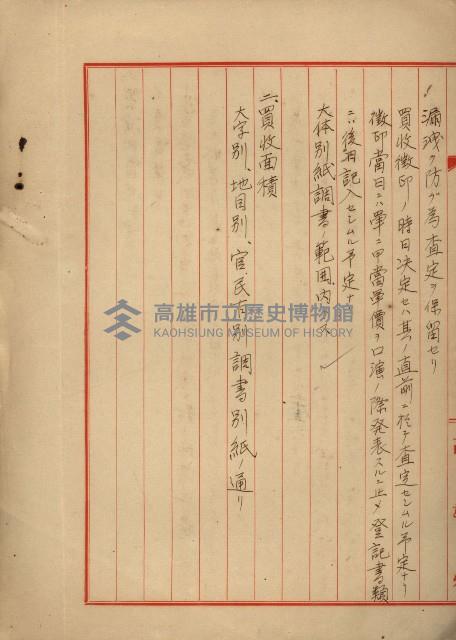 漏洩ヲ防グ為査定ヲ保留セリ
買收徴印ノ時日決定セバ其ノ直前ニ於テ査定セシムル予定ナリ
徴印當日ニハ單ニ甲當單價ヲ口演ノ際発表スルニ止メ登記書類
ニハ後日記入セシムル予定ナリ
大体別紙調書ノ範囲内
二、買收面積
大字別、地目別、官、民有別調書別紙ノ通リ
高雄市立歷史博物館
KAOHSIUNG MUSEUM OF HISTORY